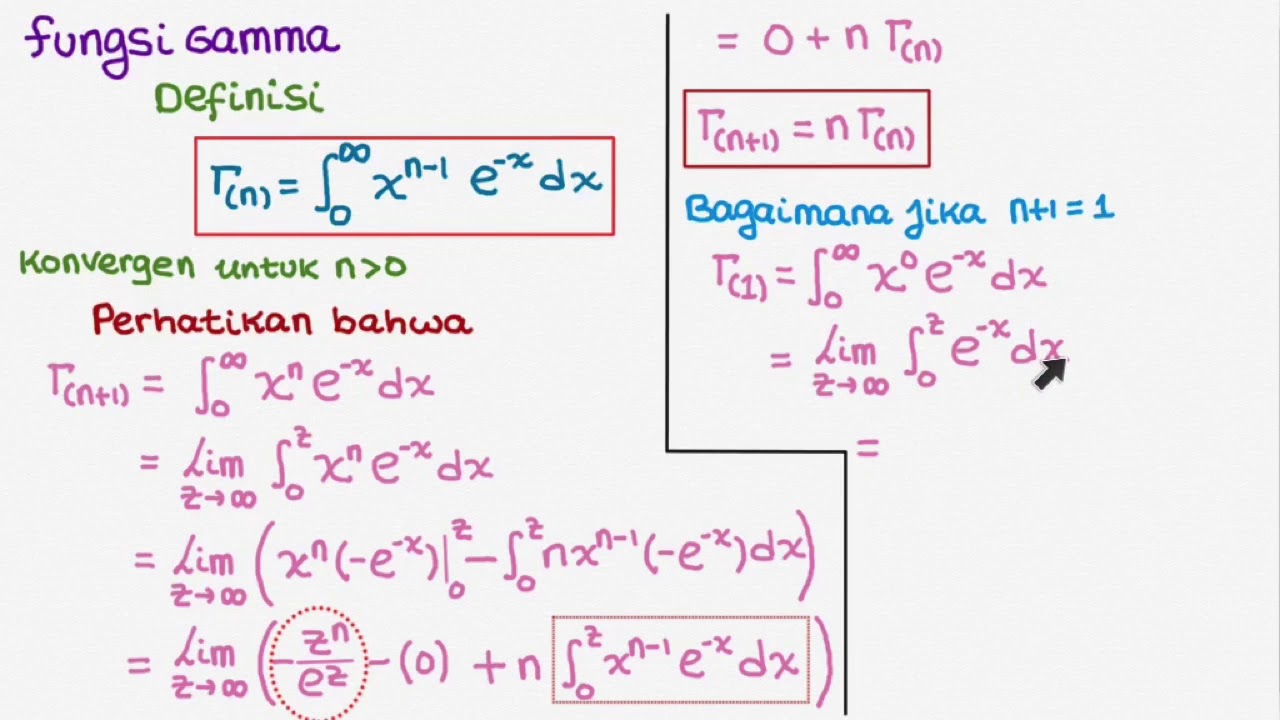 Fungsi Gamma
Definisi
Γ(n) = ∫₀^∞ x^(n-1) e^(-x) dx
Konvergen untuk n>0
Perhatikan bahwa
Γ(n+1) = ∫₀^∞ x^n e^(-x) dx
= Lim z→∞ ∫₀^z x^n e^(-x) dx
= Lim z→∞ ( x^n (-e^(-x)) |₀^z - ∫₀^z n x^(n-1) (-e^(-x)) dx )
= Lim z→∞ ( - z^n/e^z - (0) + n ∫₀^z x^(n-1) e^(-x) dx )
= 0 + n Γ(n)
Γ(n+1) = n Γ(n)
Bagaimana jika n+1 = 1
Γ(1) = ∫₀^∞ x^0 e^(-x) dx
= Lim z→∞ ∫₀^z e^(-x) dx
=